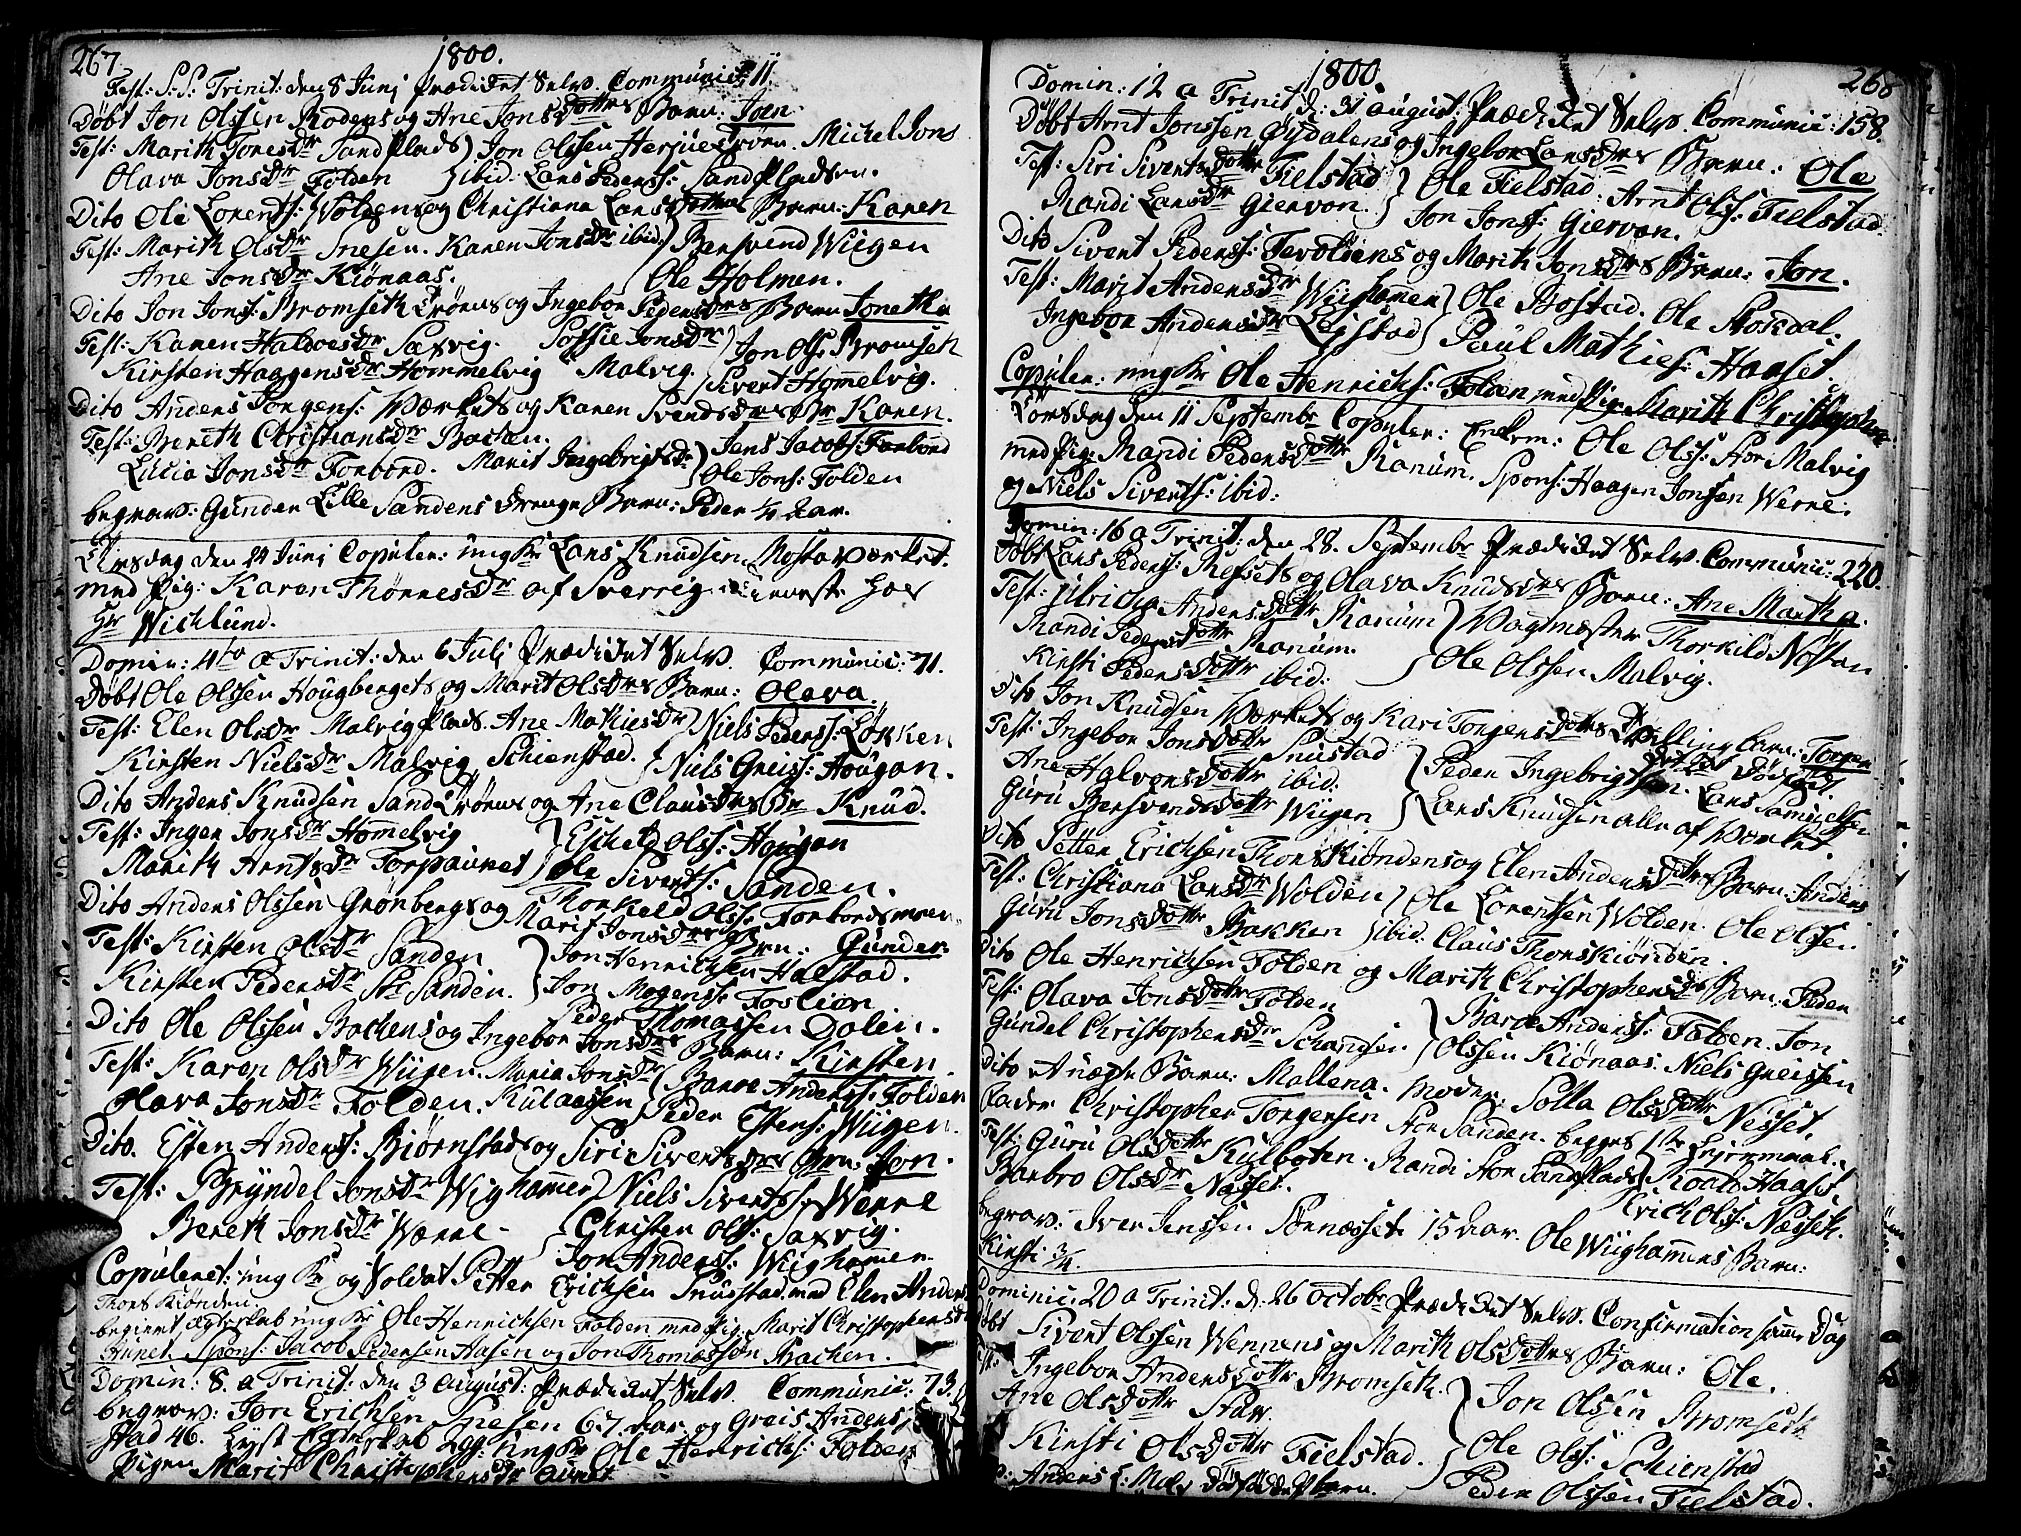 267. 1800.
Fest: S: S: Trinit: den 8 Junj Prædiket Selv. Communic: 11.
Døbt Jon Olssen Rodens og Ane Jonsdotters Barn: Joen.
Test: Marith Tonesdr Sandplads Jon Olssen Herjuetrøen. Michel Jons
Olava Jonsdr Folden ibid. Lars Pederss: Sandpladsen.
Dito Ole Lorents: Woldens og Christiana Larsdotters Barn: Karen
Test: Marith Olsdr Snesen. Karen Jonsdr ibid. Bersvend Wiigen
Ane Jonsdr Kiønaas. Ole Holmen.
Dito Jon Jonss: Bromseth Trøens og Ingebor Pedersdrs Barn Joneth
Test: Karen Haldorsdr Saxvig. Sophie Jonsdr Jon Ols: Bromseth
Kirsten Haagensdr Hommelvig Malvig. Sivert Homelvig.
Dito Anders Torgers: Værkets og Karen Svendsdrs Br Karen.
Test: Bereth Christiansdr Bachen. Jens Jacobs: Forbord
Lucia Jonsdr Forbord. Marit Ingebrigtsdr Ole Jons: Folden
begrav: Gunder Lille Sandens Drenge Barn: Peder 1/4 Aar.
Tirsdag den 24 Junj Copuler: ung Kr Lars Knudsen Mostaværket.
med Pig: Karen Thønnesdr af Sverrig tieneste hos
Hr Wichlund.
Domin: 4to a Trinit: den 6 Julj Prædiket Selv. Communic: 71.
Døbt Ole Olssen Hougbergets og Marit Olsdrs Barn: Oleva.
Test: Elen Olsdr Malvig Plads. Ane Mathiesdr Niels Pederss: Løkken
Kirsten Nielsdr Malvig Schienstad. Niels Greiss: Hougan.
Dito Anders Knudsen Sandtrøens og Ane Clausdrs Br Knud.
Test: Inger Jonsdr Homelvig Escheld Olss: Hougan
Marith Arntsdr Torpaunet Ole Siverts: Sanden.
Dito Anders Olssen Grønbergs og Thorkeld Olss: Forbordsmoen
Marit Jonsdrs Brn: Gunder.
Test: Kirsten Olsdr Sanden Jon Henrichsen Halstad.
Kirsten Pedersdr St: Sanden. Jon Mogenss: Foslien
Peder Thomassen Dalen.
Dito Ole Olssen Bachens og Ingebor Jonsdrs Barn: Kirsten.
Test: Karen Olsdr Wiigen. Maria Jonsdr Baroe Anderss: Folden
Olava Jonsdr Folden. Kulaasen Peder Estens: Wiigen.
Dito. Esten Anders: Biørnstads og Siri Sivertsdrs Brn: Jon.
Test: Bryndel Jonsdr Wighammer Niels Siverts: Werre
Bereth Jonsdr Værre Christen Olss: Saxvig.
Jon Anders: Wiighammer.
Copuleret: ung Kr og Soldat Petter Erichsen Snustad med Elen Anders
Thors Kiønden:
begiert Ægteskab ung Kr Ole Henrichsen Folden med Pig: Marit Christophersd
Aunet. Spons: Jacob Pedersen Hasen og Jon Thomassøn Bachen.
Domin: 8. a Trinit: den 3 August: Prædiket Selv. Communic: 73.
begrav: Jon Erichsen Snesen 67 Aar og Greis Anders
stad 46. Lyst Egteskab 2gg: ung Kr Ole Henrichs: Folden
Pigen Marit Christophersdr Aunet
268
1800
Domin: 12 a Trinit d: 31 August: Prædiket Selv. Communic: 158.
Døbt Arnt Jonssen Øydalens og Ingebor Larsdrs Barn: Ole
Test: Siri Sivertsdotter Fielstad Ole Fielstad. Arnt Olss: Fielstad.
Randi Larsdr Giervan. Jon Jonss: Giervan.
Dito Sivert Pederss: Fevoldens og Marith Jonsdrs Barn: Jon.
Test: Marit Andersdr Wiighamer Ole Bostad. Ole Stokdal.
Ingebor Andersdr Leistad Paul Mathies: Haaset.
Copuler: ung Kr Ole Henrichs: Folden med Pig: Marith Christopher
Torsdag den 11 Septembr Copuler: Enkem: Ole Olss: Stor Malvig
med Pig: Randi Pedersdotter Ranum. Spons: Haagen Jonssen Werre.
og Niels Siverts: ibid:
Domin: 16 a Trinit: den 28. Septembr Prædiket Selv. Communic: 220.
Døbt Lars Pederss: Refsets og Olava Knudsdrs Barn: Ane Martha.
Test: Ulricha Andersdotter Ranum Vagtmester Thorkild Nøstan
Randi Pedersdotter Ranum. Ole Olssen Malvig.
Kirsti Pedersdotter ibid:
Dito Jon Knudsen Værkets og Kari Torgersdotters Tvilling barn: Torger
Test: Ingebor Jonsdotter Snustad Peder Ingebrigtsen. Lars Samuelsen
Ane Halvorsdotter ibid: Lars Knudsen alle af Værket.
Guru Bersvendsdotter Wiigen
Dito Petter Erichsen Thorskiøndens og Elen Andersdotters Barn: Anders
Test: Christiana Larsdr Wolden Ole Lorentsen Wolden. Ole Olssen
Guru Jonsdotter Bakken ibid: Claus Thorskiønden.
Dito Ole Henrichsen Folden og Marith Christophersdr Barn: Peder
Test: Olava Jonsdotter Folden Baroe Anderss: Folden. Jon
Gundel Christophersdr Schandsen. Olssen Kiønaas. Niels Greissen
Dito Uægte Barn: Mallena. Moder: Solla Olsdotter Nesset.
Fader Christopher Torgersen Stor Sanden. begges 1ste Leiermaal.
Test: Guru Olsdotter Kulboten. Randi Stor Sandplads Roald Haaset.
Barbro Olsdr Næsset. Erich Olss: Næsset.
begrav: Iver Jenssen Sørnæsset 15 Aar. Ole Wiighammers Barn:
Kirsti 3/4.
Dominic: 20 a Trinit: d: 26 Octobr Prædiket Selv. Confirmation samme Dag
Døbt Sivert Olssen Wennens og Marith Olsdotters Barn: Ole.
Test: Ingebor Andersdotter Bromseth. Jon Olssen Bromseth
Ane Olsdotter Stav. Ole Olss: Schienstad
Kirsti Olsdotter Fielstad. Peder Olssen Fielstad.